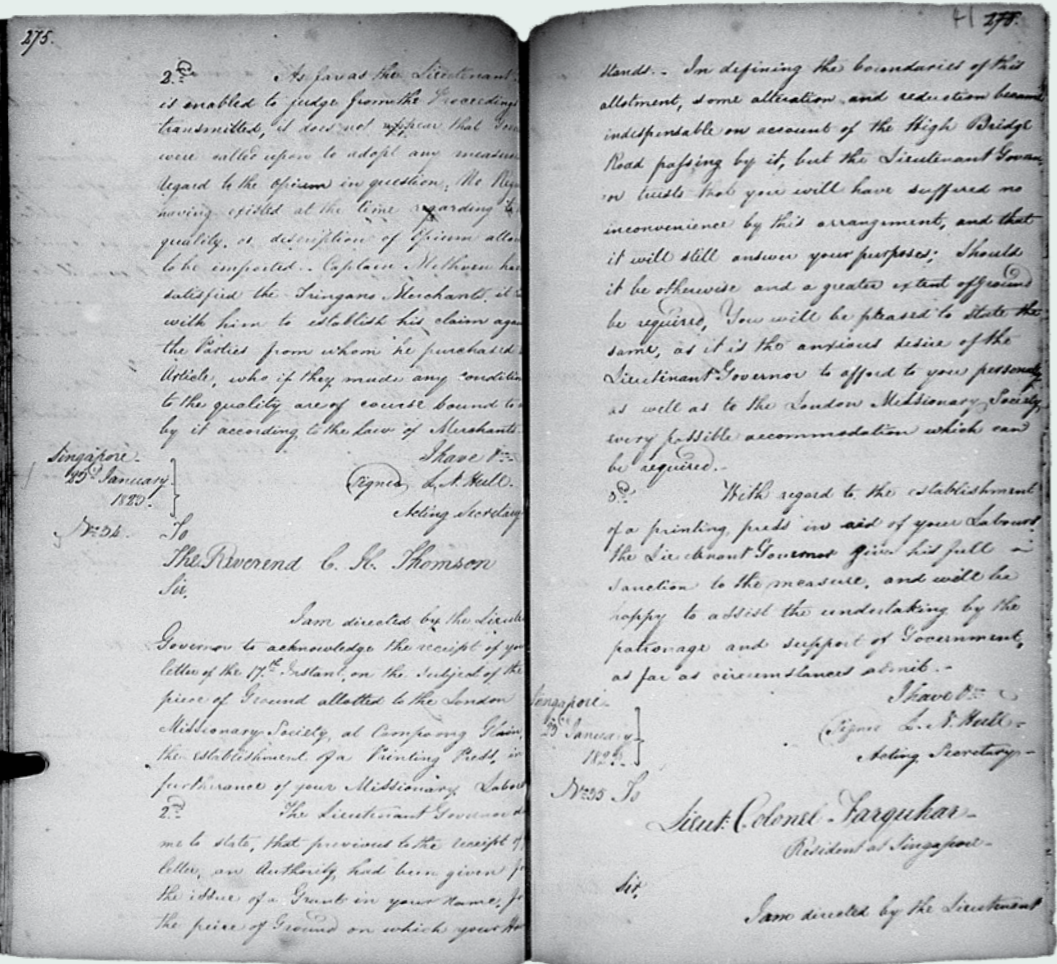 275.
2.d As far as the Lieutenant
is enabled to judge from the Proceedings
transmitted, it does not appear that
were called upon to adopt any measure
regard to the Opium in question, No
having existed at the time regarding
quality, or description of Opium
to be imported.. Captain Methven
satisfied the Tringano Merchants, it
with him to establish his claim
the Parties from whom he purchased
Article, who if they made any condition
to the quality are of course bound to
by it according to the Law of Merchants
I have &c
Singapore
23d January
1823.
(Signed) L. N. Hull
Acting Secretary
No. 34. To
The Reverend C. H. Thomson
Sir,
I am directed by the Lieute
Governor to acknowledge the receipt of your
letter of the 17th Instant, on the subject of the
piece of Ground allotted to the London
Missionary Society, at Campong Glam,
the establishment of a Printing Press, in
furtherance of your Missionary Labors
2.d The Lieutenant Governor
me to state, that previous to the receipt of
letter, an Authority had been given
the issue of a Grant in your Name,
the peice of Ground on which your
275.
stands.. In defining the boundaries of this
allotment, some alteration and reduction became
indispensable on account of the High Bridge
Road passing by it, but the Lieutenant Govern
or trusts that you will have suffered no
inconvenience by this arrangement, and that
it will still answer your purposes; Should
it be otherwise and a greater extent of Ground
be required, You will be pleased to state the
same, as it is the anxious desire of the
Lieutenant Governor to afford to you personally
as well as to the London Missionary Society
every possible accommodation which can
be required.
3.d With regard to the establishment
of a printing press in aid of your Labours
the Lieutenant Governor give his full
sanction to the measure, and will be
happy to assist the undertaking by the
patronage and support of Government,
as far as circumstances admit.-
I have &c
Singapore
23d January
1823.
(Signed L. N. Hull
Acting Secretary
No. 35 To
Lieut. Colonel Farquhar
Resident at Singapore
Sir,
I am directed by the Lieutenant